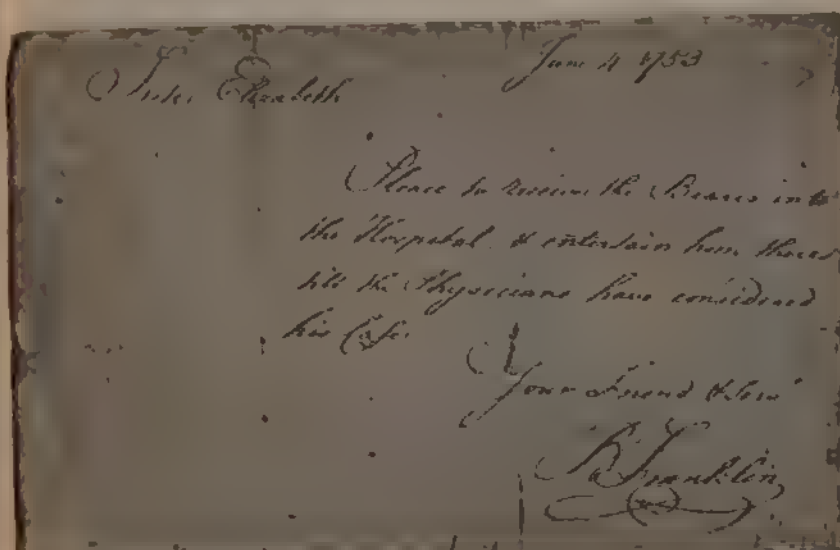 June 4 1753
Elizabeth
Please to receive the Bearer into
the Hospital & entertain him there
till the Physicians have considered
his Case.
I am
Your Friend & Serv
B Franklin